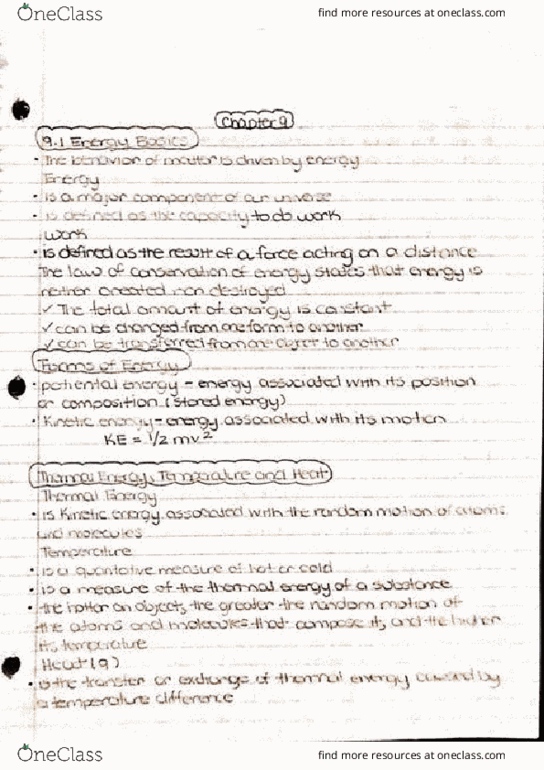 OneClass
find more resources at oneclass.com
Chapter 9
9.1 Energy Basics
• The behavior of matter is driven by energy
Energy
• is a major component of our universe
• is defined as the capacity to do work
Work
• is defined as the result of a force acting on a distance
The law of conservation of energy states that energy is
neither created nor destroyed
✓ The total amount of energy is constant
✓ can be changed from one form to another
✓ can be transferred from one object to another
Forms of Energy
• potential energy - energy associated with its position
or composition (stored energy)
• Kinetic energy - energy associated with its motion
KE = 1/2 mv²
Thermal Energy, Temperature and Heat
Thermal Energy
• is Kinetic energy associated with the random motion of atoms
and molecules
Temperature
• is a quantitative measure of hot or cold
• is a measure of the thermal energy of a substance
• the hotter an object, the greater the random motion of
the atoms and molecules that compose it, and the higher
its temperature
Heat (q)
• is the transfer or exchange of thermal energy caused by
a temperature difference
OneClass
find more resources at oneclass.com